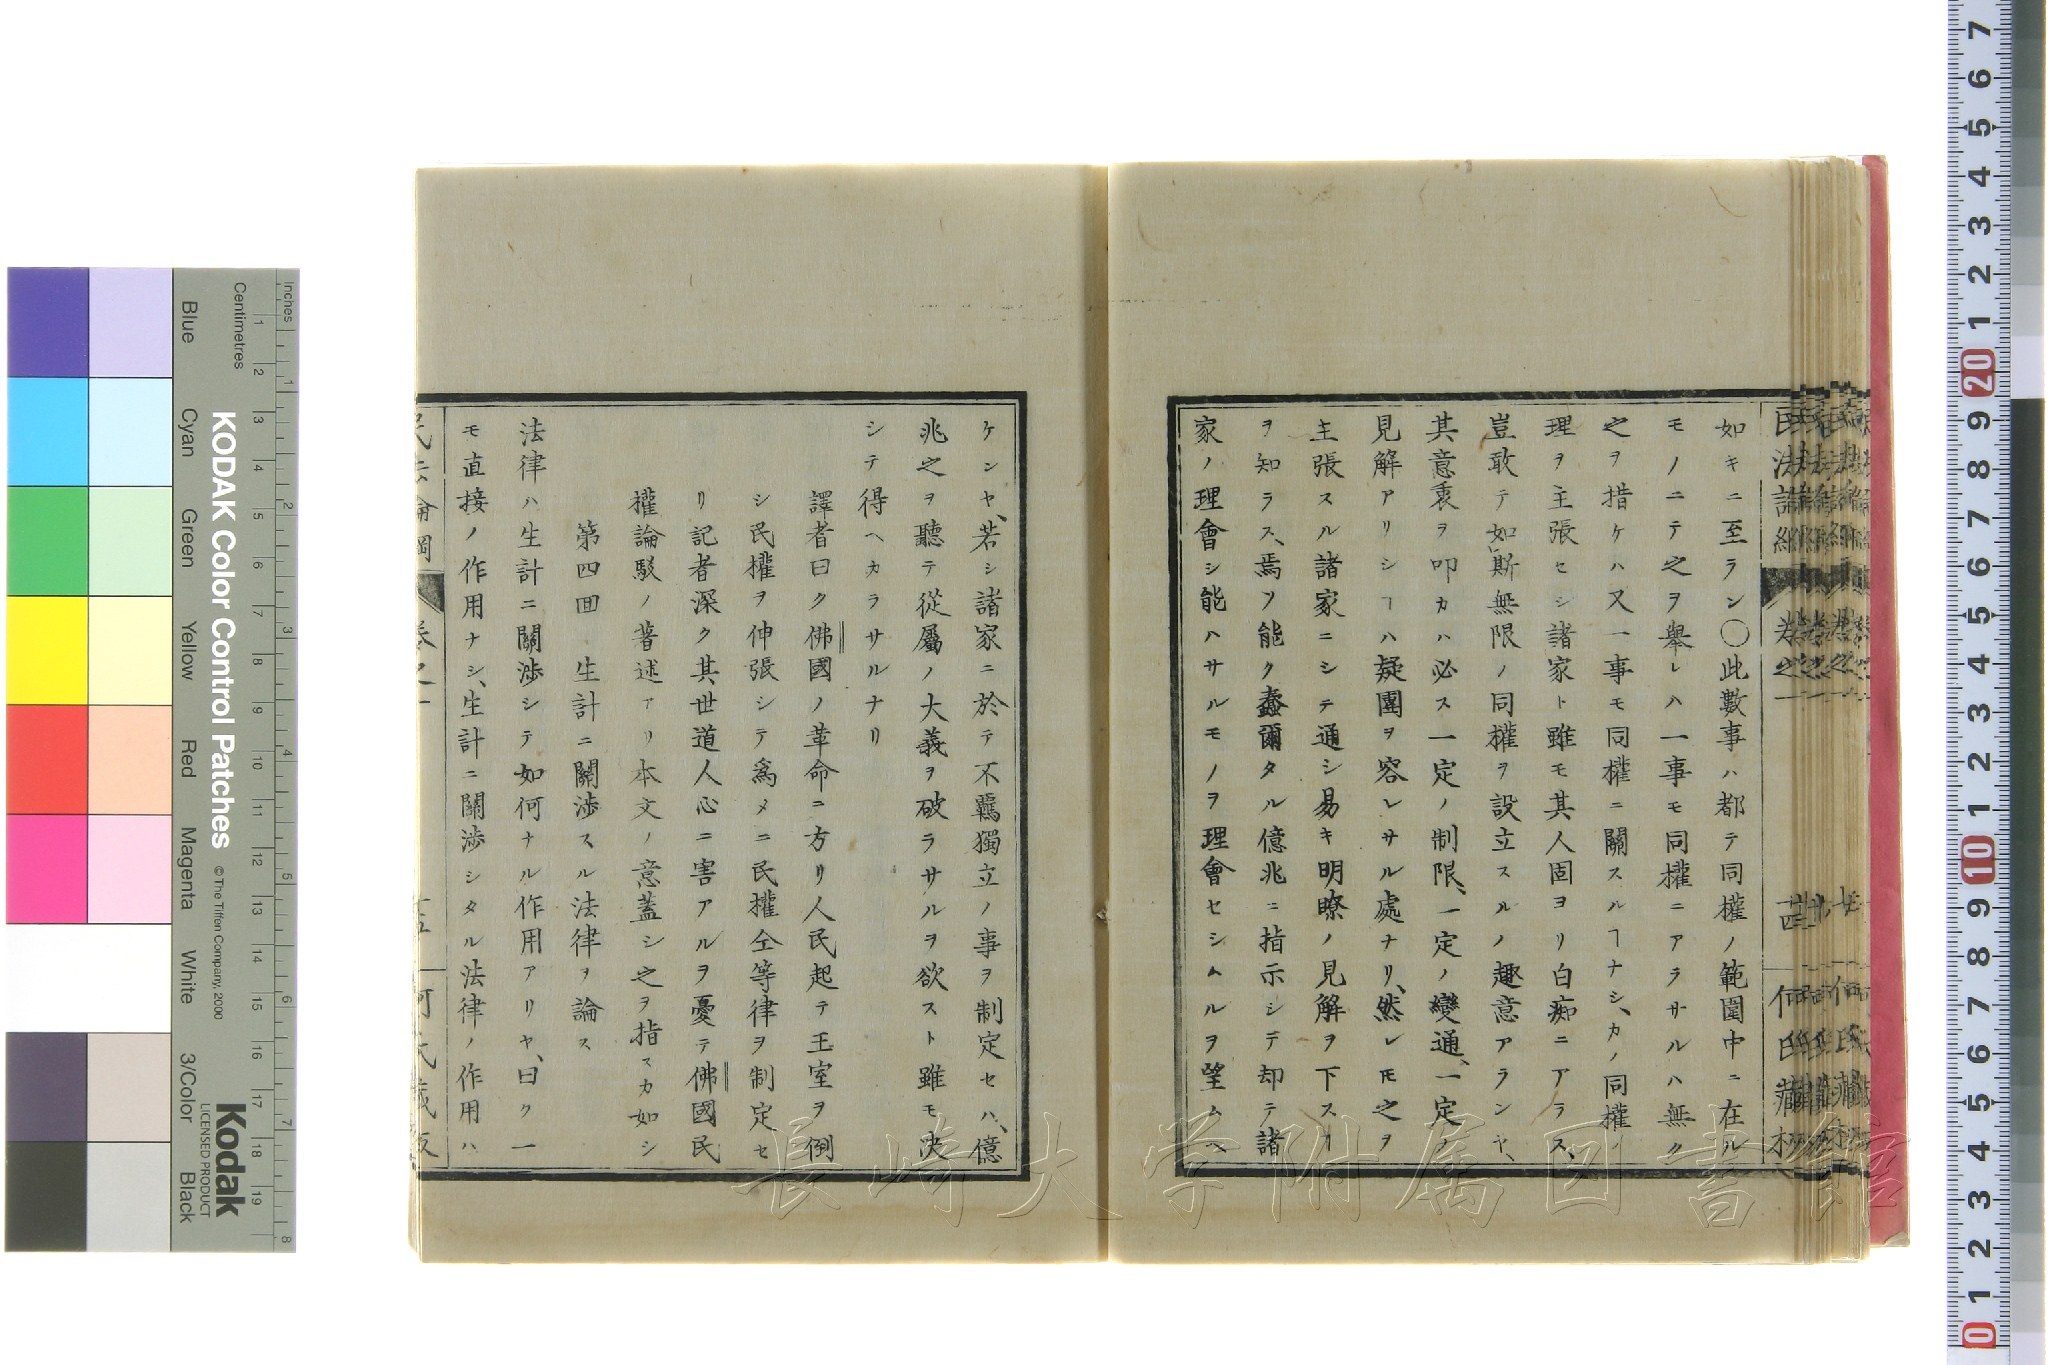 如キニ至ラン〇此數事ハ都テ同權ノ範圍中ニ在ル
モノニテ之ヲ擧レハ一事モ同權ニアラサルハ無ク
之ヲ措ケハ又一事モ同權ニ關スルヿナシ、カノ同權ノ
理ヲ主張セシ諸家ト雖モ其人固ヨリ白痴ニアラス、
豈敢テ如斯無限ノ同權ヲ設立スルノ趣意アランヤ、
其意衷ヲ叩カハ必ス一定ノ制限、一定ノ變通、一定ノ
見解アリシヿハ疑團ヲ容レサル處ナリ、然レ𪜈之ヲ
主張スル諸家ニシテ通シ易キ明瞭ノ見解ヲ下スヿ
ヲ知ラス、焉ソ能ク蠢爾タル億兆ニ指示シテ却テ諸
家ノ理會シ能ハサルモノヲ理會セシムルヲ望ムヘ
ケンヤ、若シ諸家ニ於テ不羈獨立ノ事ヲ制定セハ、億
兆之ヲ聽テ從屬ノ大義ヲ破ラサルヲ欲スト雖モ決
シテ得ヘカラサルナリ
譯者曰ク佛國ノ革命ニ方リ人民起テ王室ヲ倒
シ民權ヲ伸張シテ爲メニ民權仝等律ヲ制定セ
リ記者深ク其世道人心ニ害アルヲ憂テ佛國民
權論駁ノ著述アリ本文ノ意蓋シ之ヲ指スカ如シ
第四囬 生計ニ關渉スル法律ヲ論ス
法律ハ生計ニ關渉シテ如何ナル作用アリヤ、曰ク一
モ直接ノ作用ナシ、生計ニ關渉シタル法律ノ作用ハ
民法論綱 卷之一
何氏藏板
KODAK Color Control Patches
© The Tiffen Company, 2000
Kodak
LICENSED PRODUCT
Inches
Centimetres
Blue
Cyan
Green
Yellow
Red
Magenta
White
3/Color
Black
長崎大学附属図書館